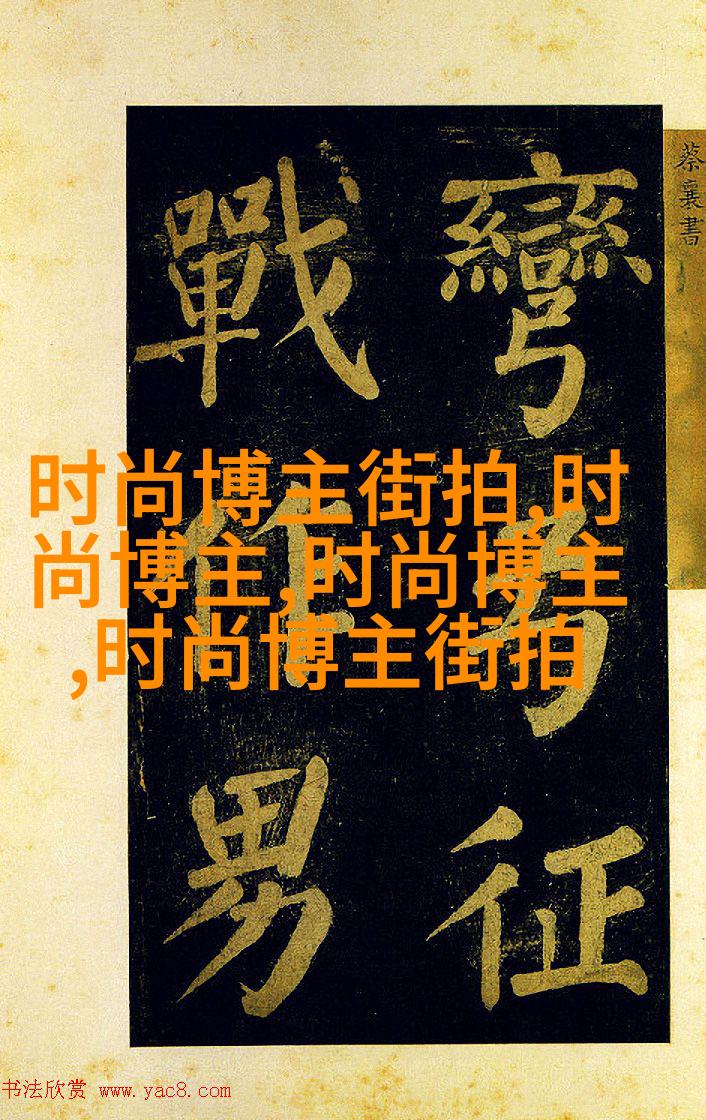 蔡襄書
彎弓征
戰作男
时尚博主街拍,时
尚博主,时尚博主
,时尚博主街拍
书法欣赏 www.yac8.com